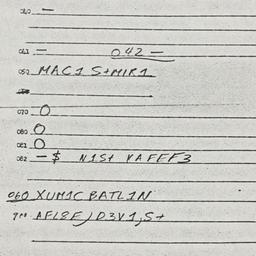 040 —
041 — 042 —
050 MAC1 S+MIR1
070 O
080 O
081 O
082 — $ N1S+ VAFFF3
060 XUM1C BATL1N
AFL8E, D3V1, S+